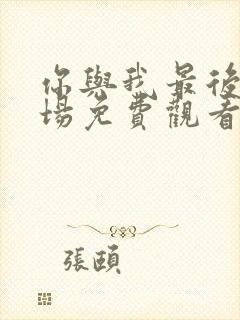 你與我最後
場免費觀看
張頤